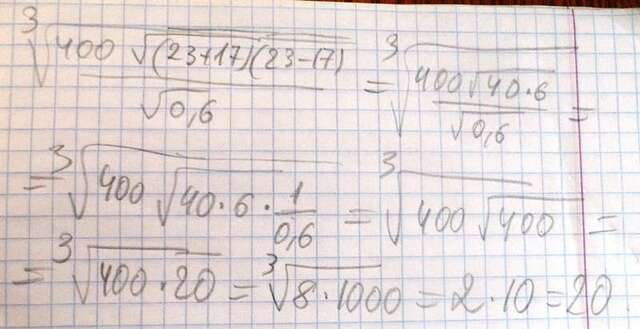 ∛(400√((23+17)(23-17)) / √0,6) = ∛(400√(40·6) / √0,6) =
= ∛(400√(40·6·1/0,6)) = ∛(400√400) =
= ∛(400·20) = ∛(8·1000) = 2·10 = 20